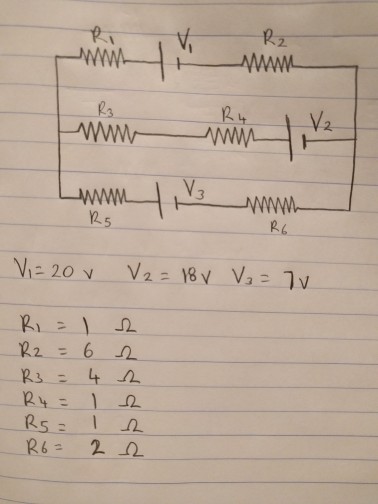 R1 V1 R2
R3 R4 V2
R5 V3 R6
V1 = 20 v V2 = 18v V3 = 7v
R1 = 1 Ω
R2 = 6 Ω
R3 = 4 Ω
R4 = 1 Ω
R5 = 1 Ω
R6 = 2 Ω